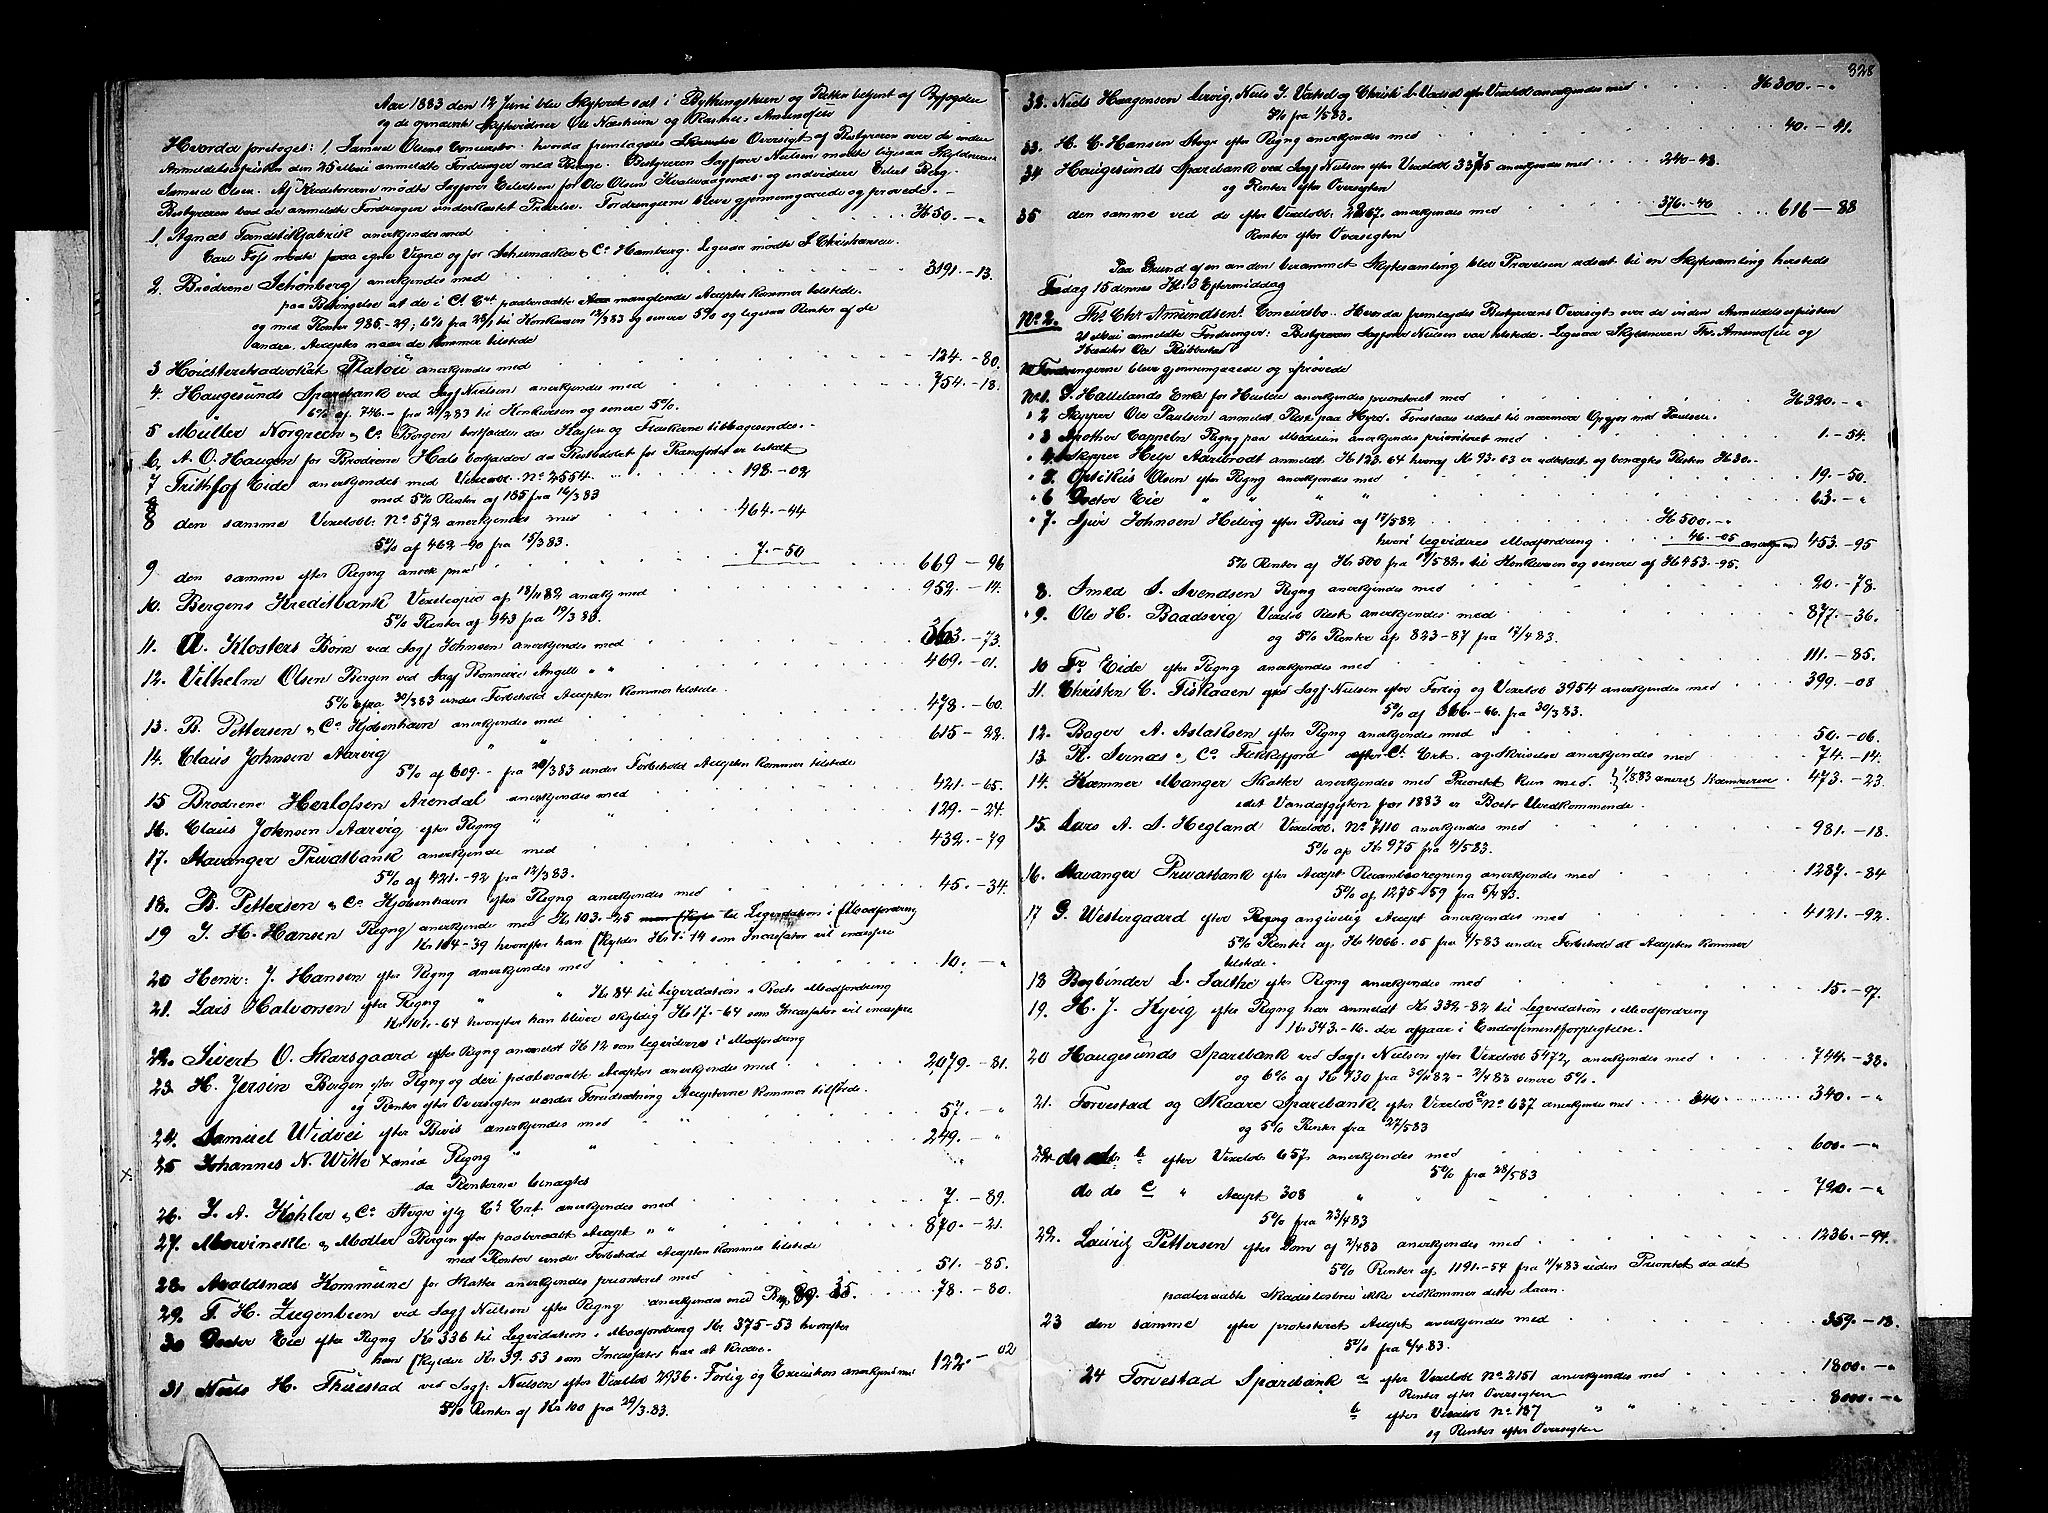 Aar 1883 den 12 Juni blev Skifteret sat i Bythingstuen og Retten betjent af Byfogden
og de opnævnte Skiftevidner Ole Næsheim og Rasmus Amundsen
Hvorda foretoges: 1, Samuel Olsens Concursbo. hvorda fremlagdes Oversigt af Bestyreren over de inden
Anmeldelsesfristen den 25 Mai anmeldte Fordringer med Bilage. Bestyreren Sagfører Nielsen mødte ligesaa Skyldneren
Samuel Olsen. Af Kreditorerne mødte Sagfører Eilertsen for Ole Olsen Kvalavaagnæs og endvidere Eilert Berg.
Bestyreren bad de anmeldte Fordringer underkastet Prøvelse. Fordringerne bleve gjennemgaaede og prøvede.
1, Agnæs Tændstikfabrik anerkjendes med Kr 50.-"
Carl Foss mødte paa egne Vegne og for Schumacker & Co Hamburg. Ligesaa mødte S. Christiansen.
2. Brødrene Schönberg anerkjendes med 3191.-13.
paa Betingelse at de i Ct Crt paaberaabte manglende Accepter kommer tilstede.
og med Renter 985-29; 6% fra 28/1 til Konkursen 12/3 83 og senere 5% og ligesaa Renter af de
andre Accepter naar de kommer tilstede
3 Høiesteretsadvokat Platou anerkjendes med 124.-80.
4. Haugesunds Sparebank ved Sagf Nielsen anerkjendes med 754.-18.
6% af 746.- fra 20/2 83 til Konkursen og senere 5%.
5 Müller Norgreen & Co Bergen bortfalder da Kassen og Flaskerne tilbagesendes.-
6, A. O. Haugen for Brødrene Hals bortfalder da Restbeløbet for Pianofortet er betalt
7 Frithjof Eide anerkjendes med Vexelobl. No 2554. 198.-02
med 5% Renter af 185 fra 16/3 83
8 den samme Vexelobl. No 572 anerkjendes med 464.-44
5% af 462-90 fra 15/3 83.
9 den samme efter Regng anerkjendes 7.-50 669-96
10. Bergens Kreditbank Vexelcopie af 18/11 82 anerkj med 952.-14.
5% Renter af 943 fra 19/3 83.
11. A. Klosters Børn ved Sagf Johnsen anerkjendes med 363-73.
12. Vilhelm Olsen Bergen ved Sagf Angell " " 469.-01.
5% fra 30/3 83 under Forbehold Accepten kommer tilstede.
13. B. Pettersen & Co Kjøbenhavn anerkjendes med 478.-60.
14. Claus Johnsen Aarvig " " 615-22.
5% af 609.- fra 20/3 83 under Forbehold Accepten kommer tilstede
15 Brødrene Herlofsen Arendal anerkjendes med 421-65.
16. Claus Johnsen Aarvig efter Regng " " 129.-24.
17. Stavanger Privatbank anerkjende med 432.-79
5% af 421.-92 fra 12/3 83.
18. B. Pettersen & Co Kjøbenhavn efter Regng anerkjendes med 45.-34.
19 J. H. Hansen Regng anerkjendes med Kr 103.-25 til Legvidation i Modfordring
Kr 104-39 hvorefter han skylder Kr 1.14 som Incassator vil incassere
20 Henr: J. Hansen efter Regng anerkjendes med 10.-"
21. Lars Halvorsen efter Regng " " Kr 84 til Legvidation i Boets Modfordring
Kr 101.-64 hvorefter han bliver skyldig Kr 17.-64 som Incassator vil incassere
22. Sivert O. Skarsgaard efter Regng anmeldt Kr 12 som legvideres i Modfordring
23. H. Jersin Bergen efter Regng og deri paaberaabte Accepter anerkjendes med 2079.-81.
og Renter efter Oversigten under Forudsætning Accepterne kommer tilstede.
24. Samuel Widvei efter Bevis anerkjendes med 57.-"
25 Johannes N. Witte x Regng " " 249.-"
da Renterne benægtes
26. J. A. Köhler & Co Stvgr eftg Ct Crt. anerkjendes med 7.-89.
27. Mowinckle & Møller Bergen efter paaberaabt Accept " " 870.-21.
med Renter under Forbehold Accepten kommer tilstede
28. Avaldsnæs Kommune for Skatter anerkjendes prioriteret med 51.-85.
29. F. H. Ziegenbein ved Sagf Nielsen efter Regng anerkjendes med 78.-80.
30 Doctor Eie efter Regng Kr 336 til Legvidation i Modfordring Kr 375-53 hvorefter
han skylder Kr 39.53 som Incassator har at kræve.
31 Niels H. Thuestad ved Sagf: Nielsen efter Vexelobl 2936. Forlig og Execution anerkjend med 122.-02
5% Renter af Kr 100 fra 29/3.83.
328
32. Niels Haagensen Lervig, Niels J. Vatsd og Christ: L. Vadsd efter Vexelobl anerkjendes med Kr 300.-"
7% fra 1/5 83.
33. H. C. Hansen Stvgr efter Regng anerkjendes med 40.-41.
34 Haugesunds Sparebank ved Sagf Nielsen efter Vexelobl 3375 anerkjendes med 240-48.
og Renter efter Oversigten
35 den samme ved do efter Vexelobl. 2867. anerkjendes med 376.-40 616-88
Renter efter Oversigten
Paa Grund af en anden berammet Skiftesamling blev Prøvelsen udsat til en Skiftesamling herstede
Fredag 15 dennes Kl. 3 Eftermiddag
No 2. Thr. Chr Amundsens Concursbo. Hvorda fremlagdes Bestyrerens Oversigt over de inden Anmeldelsesfristen
21 Mai anmeldte Fordringer: Bestyreren Sagfører Nielsen var tilstede. Ligesaa Skyldneren Thr. Amundsen og
Kreditor Ole
Fordringerne blev gjennemgaaede og prøvede
No 1. G. Hallelands Enke for Husleie anerkjendes prioriteret med Kr 320.-"
" 2 Skipper Ole Paulsen anmeldt Rest paa Hyre. Foreslaaes udsat til nærmere Opgjør med Paulsen.
" 3 Apotheker Cappelen Regng paa Medicin anerkjendes prioriteret med 1.-54.
" 4 Skipper Helje Aarebrodt anmeldt Kr 123.64 hvoraf Kr 93.63 er udbetalt og benægtes Resten Kr 30.-
" 5. Optikus Olsen efter Regng anerkjendes med 19.-50.
" 6 Doctor Eie " " " 63.-"
" 7. Sjur Johnsen Helvig efter Bevis af 17/5 82 Kr 500.-"
hvori legvideres Modfordring 46.-05 anerkjend 453.-95
5% Renter af Kr 500 fra 17/5 82. til Konkursen og senere af Kr 453.-95.
8. Smed S. Svendsen Regng anerkjendes med 20.-78.
" 9. Ole H. Baadsvig Vexelob Rest anerkjendes med 877.-36.
og 5% Renter af 823-87 fra 17/4 83.
10 Fr Eide efter Regng anerkjendes med 111.-85.
11. Christen C. Fiskaaen efter Sagf. Nielsen efter Forlig og Vexelobl 3954 anerkjendes med 399.-08
5% af 366.-66. fra 30/3 83.
12. Bager A. Aslaksen efter Regng anerkjendes med 50.-06.
13 R. Svenas & Co Flekkefjord efter Ct Crt. og Skrivelse anerkjendes med 74.-14.
14. Kæmner Manger Skatter anerkjendes med Prioritet kun med 473.-23.
idet Vandafgiften for 1883 er Boet Uvedkommende.
15. Lars A. S. Hegland Vexelobl. No 7110 anerkjendes med 981.-18.
5% af Kr 975 fra 4/5 83.
16. Stavanger Privatbank efter Accept Recambioregning anerkjendes med 1287.-84
5% af 1275-59 fra 5/4 83.
17 G. Westergaard efter Regng angivelig Accept anerkjendes med 4121.-92.
5% Renter af Kr 4066.05 fra 1/5 83 under Forbehold at Accepten kommer
tilstede.
18 Bogbinder L. Sælthe efter Regng anerkjendes med 15.-97.
19. H. J. Kyvig efter Regng har anmeldt Kr 332-82 til Legvidation i Modfordring
Kr 343.-16. der afgaar i Endossementforpligtelse.
20 Haugesunds Sparebank ved Sagf. Nielsen efter Vexelobl 5472, anerkjendes med 744.-38.
og 6% af Kr 730 fra 30/11 82 - 2/4 83 senere 5%.
21. Torvestad og Skaare Sparebank. efter Vexelobl a No 637 anerkjendes med 340 340.-"
og 5% Renter fra 27/5 83
22. do do b efter Vexelobl 657 anerkjendes med 600.-"
5% fra 28/5 83
do do c " Accept 308 " " 720.-"
5% fra 23/4 83
22. Lauritz Pettersen efter Dom af 2/4 83 anerkjendes med 1236.-94.
5% Renter af 1191.-54 fra 11/4 83 uden Prioritet da det
paaberaabte Skadesløsbrev ikke vedkommer dette Laan.
23 den samme efter protesteret Accept anerkjendes med 359.-18.
5% fra 6/4 83.
24 Torvestad Sparebank a efter Vexelobl No 2151 anerkjendes med 1800.-"
Renter efter Oversigten
b efter Vexelobl No 187 " " 8000.-"
og Renter efter Oversigten